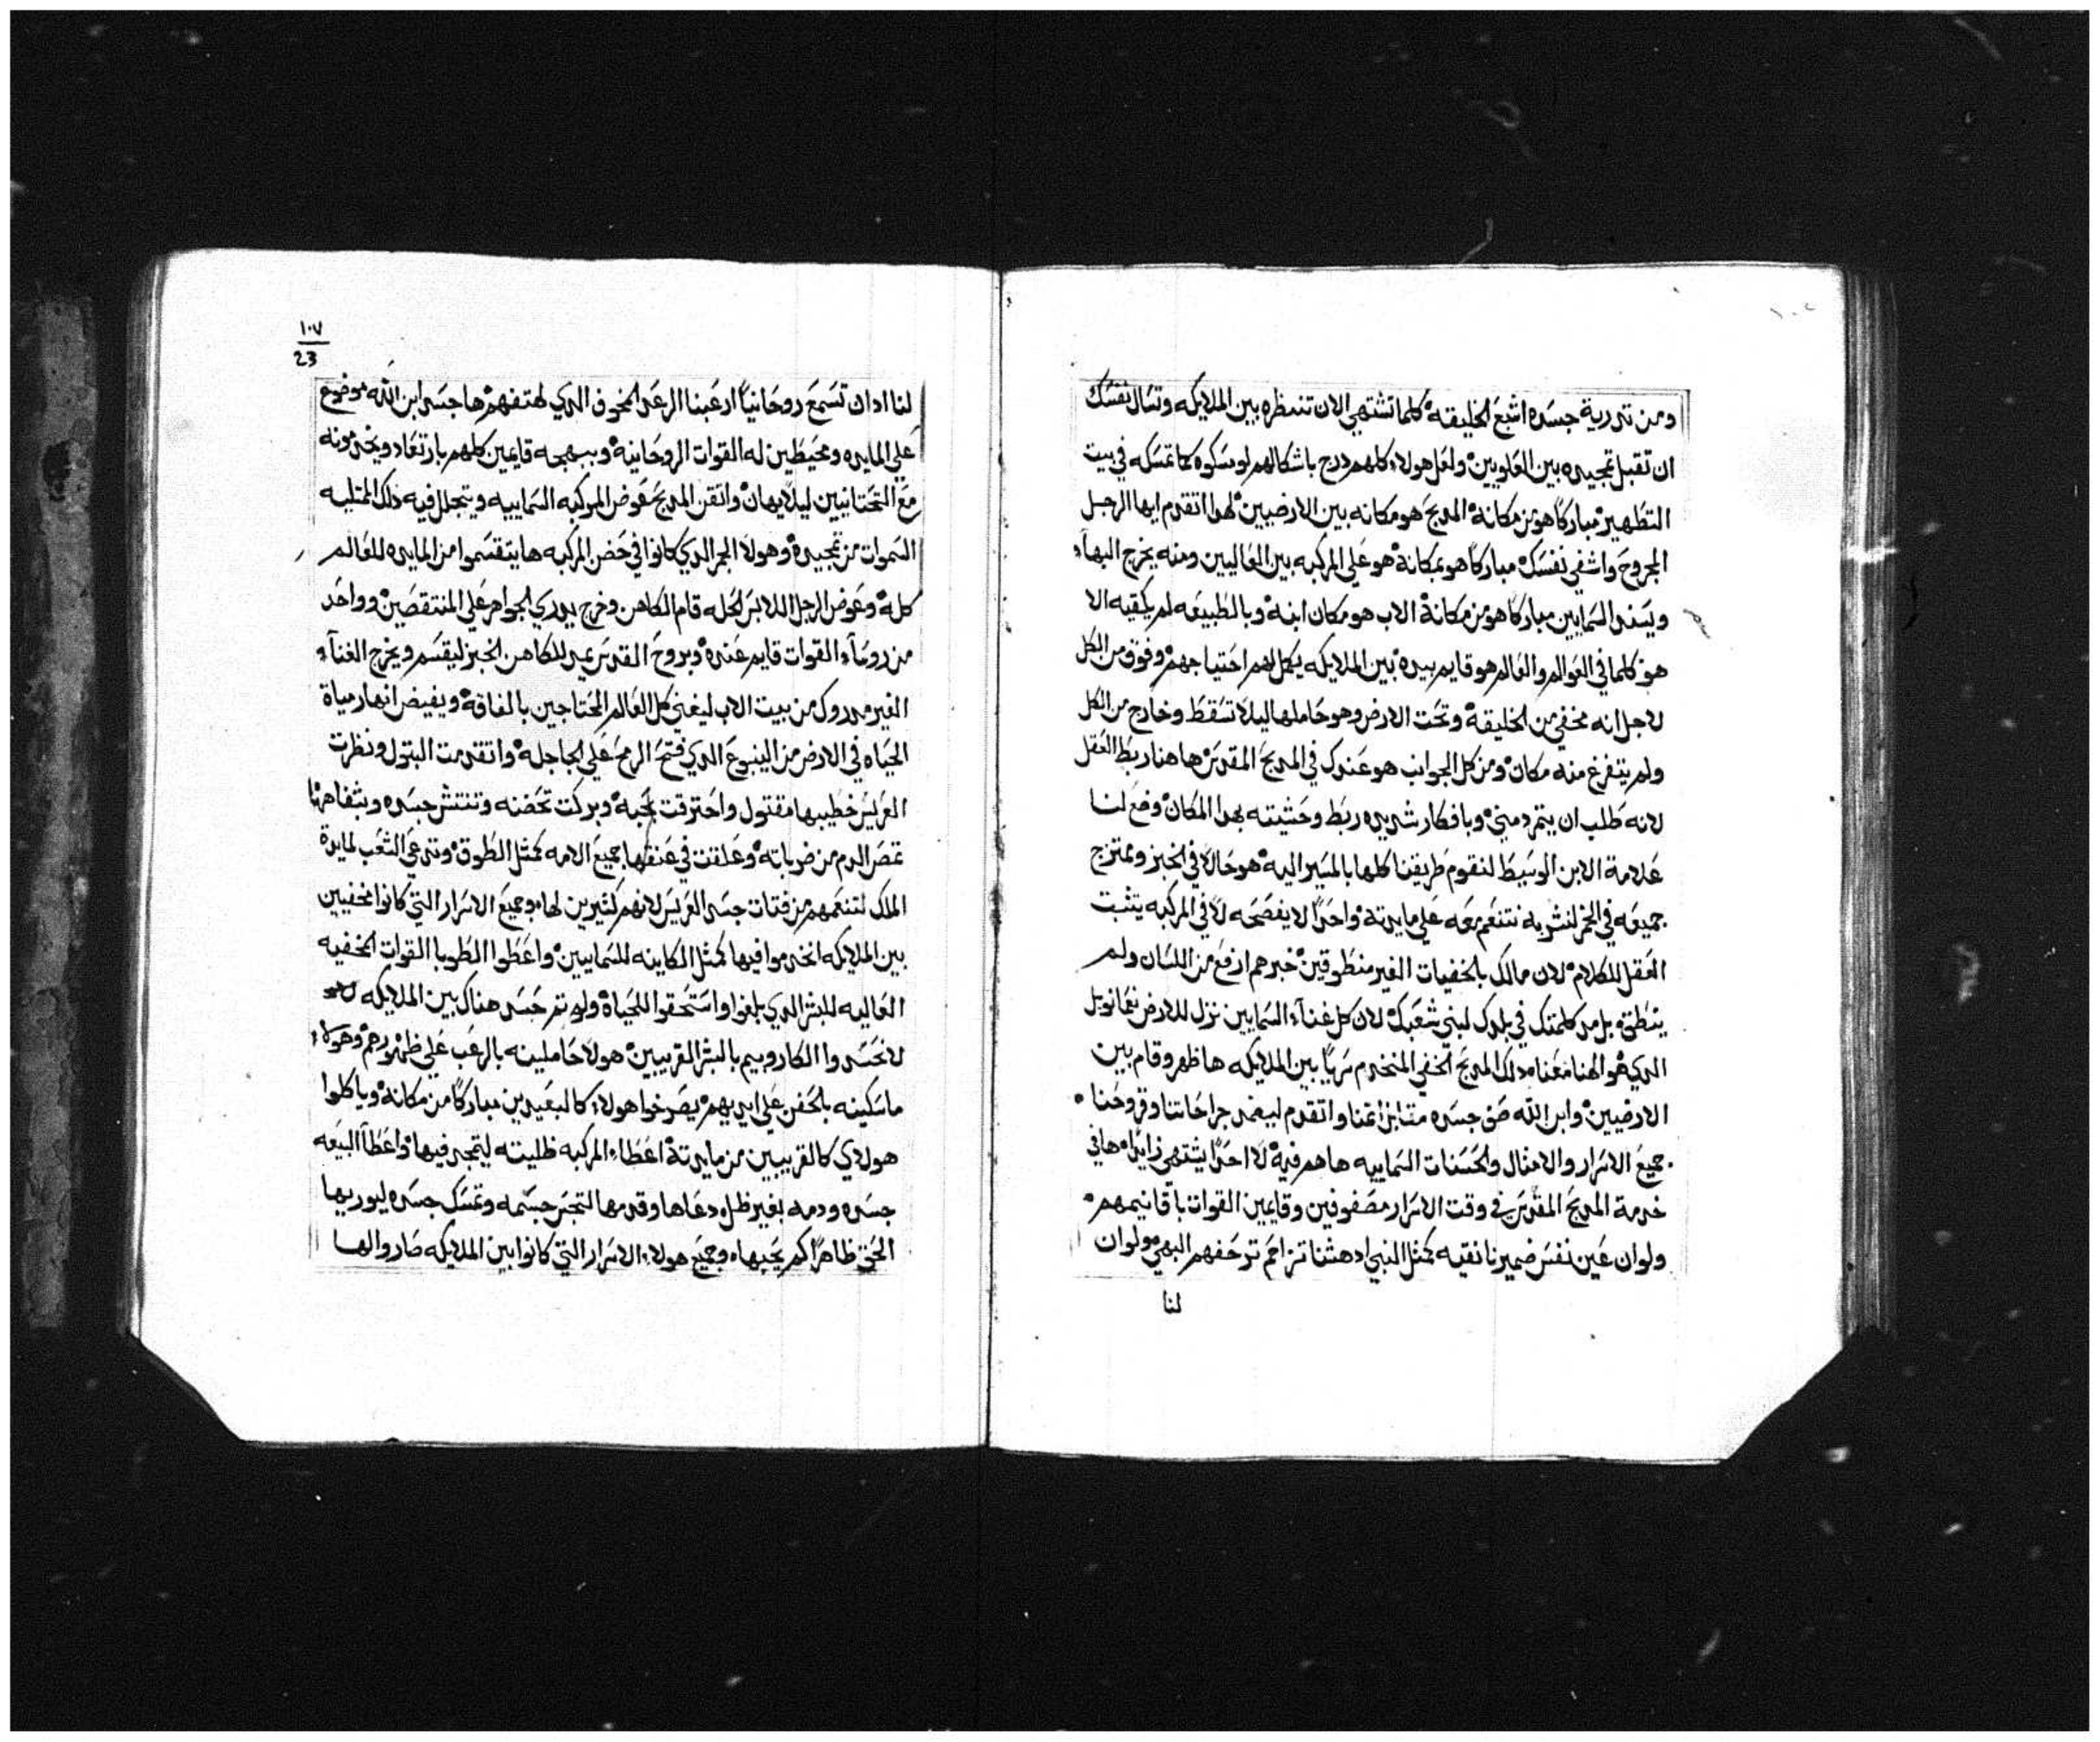 ومن تدرية جسده اشبع الخليقة كلما تشتهي الان تنظره بين الملايكه وتسال نفسك
ان تقبل تمجيده بين العلويين ولعل هولاء كلهم درج باشكالهم لو مسكوه كما تمسكه في بيت
التطهير مباركا هو من مكانه المديح هو مكانه بين الارضيين لهدا اتقدم ايها الرجل
المجروح واشفي نفسك مباركا هو بمكانة هو علي المركبه بين العاليين ومنه يخرج البهاء
ويسند السمايين مباركا هو من مكانة الاب هو مكان ابنه وبالطبيعه لم يكفيه الا
هو كلما في العوالم والعالم هو قايم بيده بين الملايكه يكمل لهم احتياجهم وفوق من الكل
لاجل انه مخفي من الخليقه وتحت الارض وهو حاملها ليلا تسقط وخارج من الكل
ولم يتفرغ منه مكان ومن كل الجوانب هو عندك في المدبح المقدس هاهنا ربط العقل
لانه طلب ان يتمرد مني وبافكار شديده ربط وحشيته بهدا المكان وضع لنا
علامة الابن الوسيط لنقوم طريقنا كلها بالمسير اليه هو حالا في الخبز وممتزج
جميعه في الخمر لنشربه نتنعم معه علي مايدته واحدا لا يفصحه لا في المركبه يتثبت
العقل للكلام لان مالك بالخفيات الغير منطوقين خبرهم ارفع من اللسان ولم
ينطق بل مد كلمتك في بلدك لبني شعبك لان كل غناء السمايين نزل للارض نعمانويل
الدي هو الهنا معنا دلك المدبح الخفي المنخدم سريا بين الملايكه ها ظهر وقام بين
الارضيين وابن الله صن جسده متا بزاغنا واتقدم ليضمد جراحاتنا وقروحنا
جميع الاسرار والامثال والحسنات السماييه ها هم فيه لا احدا يشتهي زايدا هافي
خدمة المدبح المقدس في وقت الاسرار مصفوفين وقايمين القوات باقانيمهم
ولو ان عين نفس ضميرنا نقيه كمثل النبي ادهشنا تزاحم ترحفهم البهي ولو ان
لنا
١٠٧
23
لنا ادان تسمع روحانيا ارعبنا الرعد المخوف الدي لهتفهم ها جسد ابن الله موضوع
علي المايده ومحيطين له القوات الروحانيه وببهجه قايمين كلهم بارتعاد ويخدمونه
مع التحتانيين ليلا يهان واتقن المدبح عوض المركبه السماييه ويتجلل فيه دلك المتلبه
السموات من تمجيده وهولا الجمر الدي كانوا في حضن المركبه ها يتقسموا من المايده للعالم
كله وعوض الرجل اللابس الحله قام الكاهن وخرج يدري الجواهر علي المنتقصين وواحد
من روساء القوات قايم عنده وبروح القدس يمد للكاهن الخبز ليقسم ويخرج الغناء
الغير مدروك من بيت الاب ليغني كل العالم المحتاجين بالفاقه ويفيض انهار مياة
الحياه في الارض من الينبوع الدي فتح الرمح علي الجاجله واتقدمت البتول ونظرت
العريس خطيبها مقتول واحترقت بحبه وبركت تحضنه وتنتش جسده وبشفاهها
تمصر الدم من ضرباته وعلقت في عنقها جميع الامه كمثل الطوق وتدعي الشعب لمايدة
الملك لتنعمهم من فتات جسد العريس لانهم كثيرين لها وجميع الاسرار التي كانوا مخفيين
بين الملايكه انخدموا فيها كمثل الكاينه للسماييين واعطوا الطوبا القوات الخفيه
العاليه للبشر الدي بلغوا واستحقوا للحياه ولو تم حسد هناك بين الملايكه
لانحسدوا الكاروبيم بالبشر القريبين هولا حاملينه بالرعب علي ظهورهم وهولاء
ماسكينه بالحفن علي ايديهم يصرخوا هولاء كالبعيدين مباركا من مكانه وياكلوا
هولاي كالقريبين من مايدته اعطاء المركبه ظليته ليتمجد فيها واعطا البيعه
جسده ودمه بغير ظل دعاها وقدمها لتجسر جسمه وتمسك جسده ليوريها
الحق ظاهرا كم يحبها وجميع هولاء الاسرار التي كانوا بين الملايكه صاروا لها